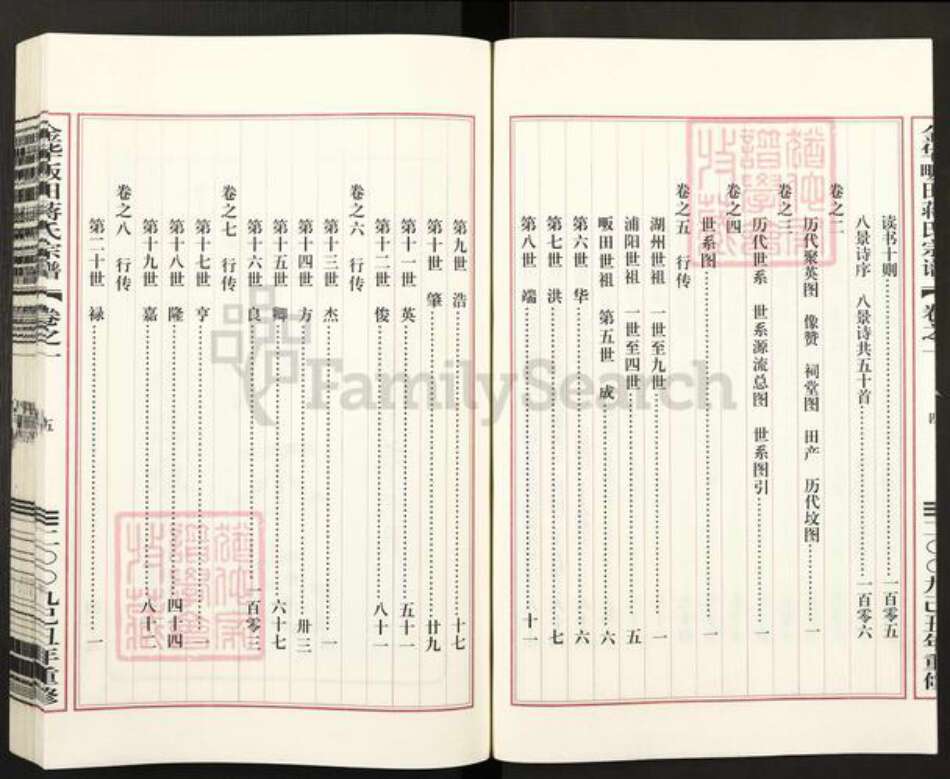 读书十则 一百零五
八景诗序 八景诗共五十首 一百零六
卷之二
历代聚英图 像赞 祠堂图 田产 历代坟图 一
卷之三
历代世系 世系源流总图 世系图引 一
卷之四
世系图 一
卷之五 行传
湖州世祖 一世至九世 一
浦阳世祖 一世至四世 五
畈田世祖 第五世 成 六
第六世 华 六
第七世 洪 七
第八世 端 十一
第九世 浩 十七
第十世 肇 廿九
第十一世 英 五十一
第十二世 俊 八十一
卷之六 行传
第十三世 杰 一
第十四世 方 卅三
第十五世 卿 六十七
第十六世 良 一百零三
卷之七 行传
第十七世 亨 一
第十八世 隆 四十四
第十九世 嘉 八十二
卷之八 行传
第二十世 禄 一
金华畈田蒋氏宗谱 卷之一 五 二〇〇九己丑年重修
FamilySearch